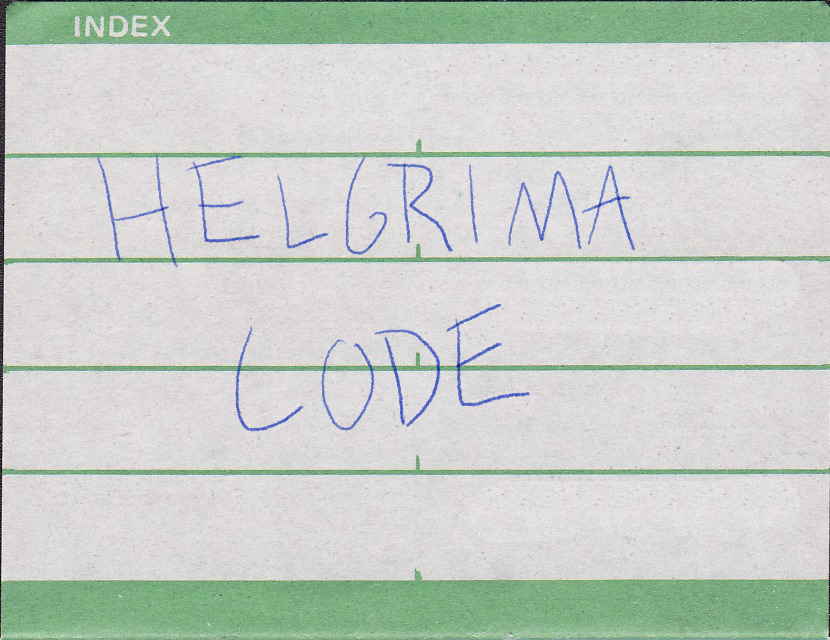 INDEX
HELGRIMA
CODE